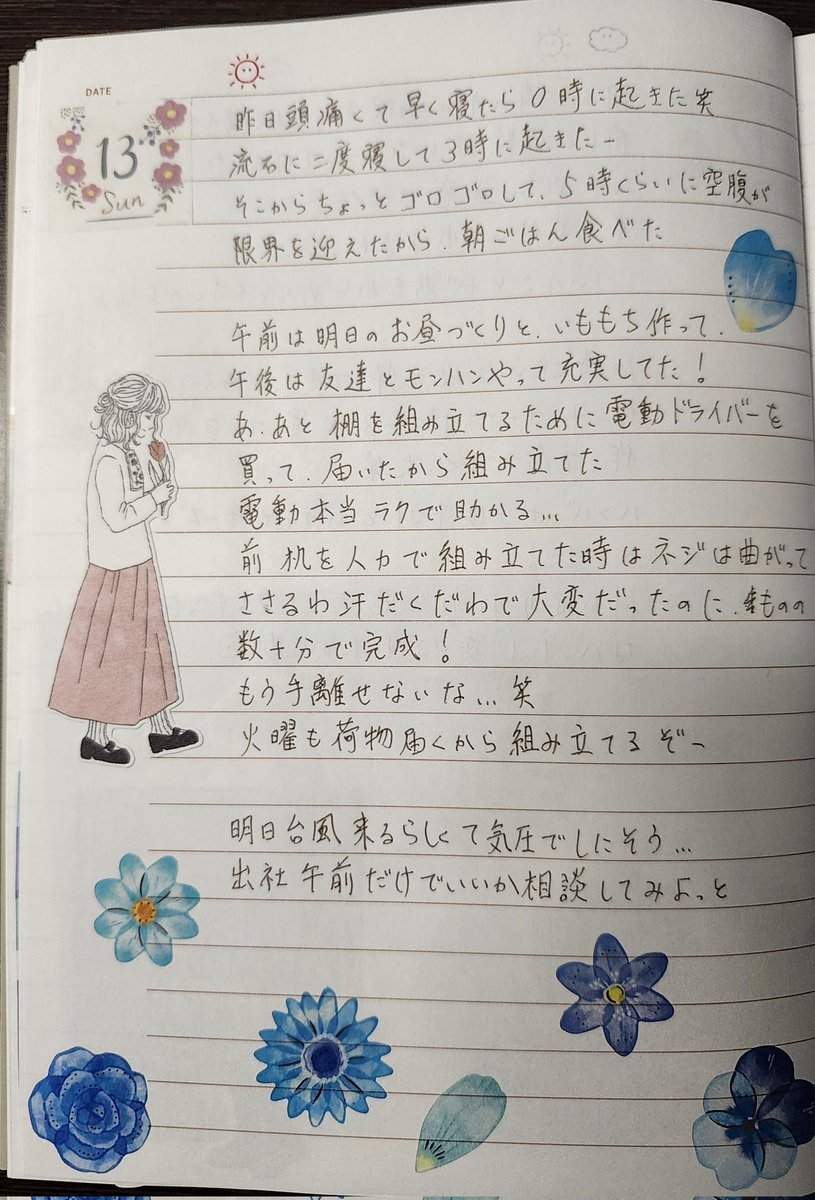 DATE
13
Sun
昨日頭痛くて早く寝たら0時に起きた笑
流石に二度寝して3時に起きたー
そこからちょっとゴロゴロして、5時くらいに空腹が
限界を迎えたから、朝ごはん食べた
午前は明日のお昼づくりと、いももち作って、
午後は友達とモンハンやって充実してた!
あ、あと棚を組み立てるために電動ドライバーを
買って、届いたから組み立てた
電動本当ラクで助かる...
前机を人力で組み立てた時はネジは曲がって
ささるわ汗だくだわで大変だったのに、ものの
数十分で完成!
もう手離せないな...笑
火曜も荷物届くから組み立てるぞー
明日台風来るらしくて気圧でしにそう...
出社午前だけでいいか相談してみよっと